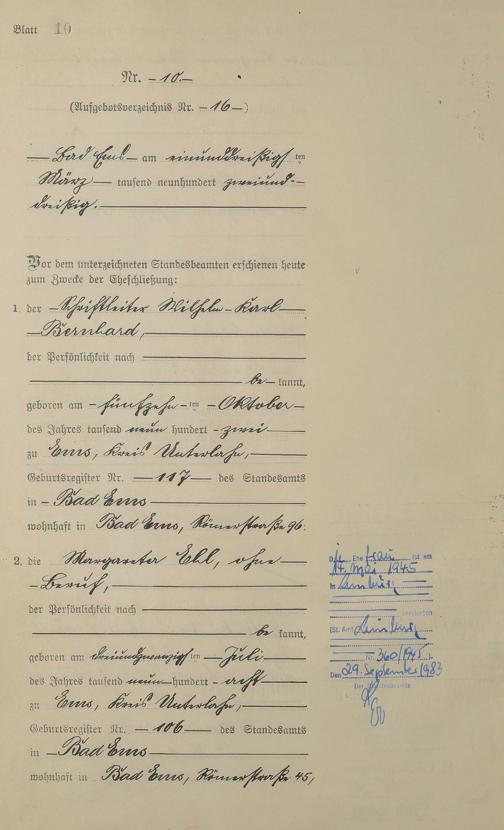 Blatt 10
Nr. -10.-
(Aufgebotsverzeichnis Nr. -16-)
Bad Ems am einunddreißigsten
März tausend neunhundert zweiund-
dreißig.
Vor dem unterzeichneten Standesbeamten erschienen heute
zum Zwecke der Eheschließung:
1. der Schriftleiter Wilhelm Karl
Bernhard,
der Persönlichkeit nach
be kannt,
geboren am fünfzehnten Oktober
des Jahres tausend neun hundert zwei
zu Ems, Kreis Unterlahn,
Geburtsregister Nr. 117 des Standesamts
in Bad Ems
wohnhaft in Bad Ems, Römerstraße 96.
2. die Margareta Ebl, ohne
Beruf,
der Persönlichkeit nach
be kannt,
geboren am dreiundzwanzigsten Juli
des Jahres tausend neun hundert acht
zu Ems, Kreis Unterlahn,
Geburtsregister Nr. 106 des Standesamts
in Bad Ems
wohnhaft in Bad Ems, Römerstraße 45,
Die Ehefrau ist am
14. Mai 1945
in Limburg
verstorben
(St. Amt Limburg
Nr. 360/1945).
Den 29. September 1983
Der Standesbeamte